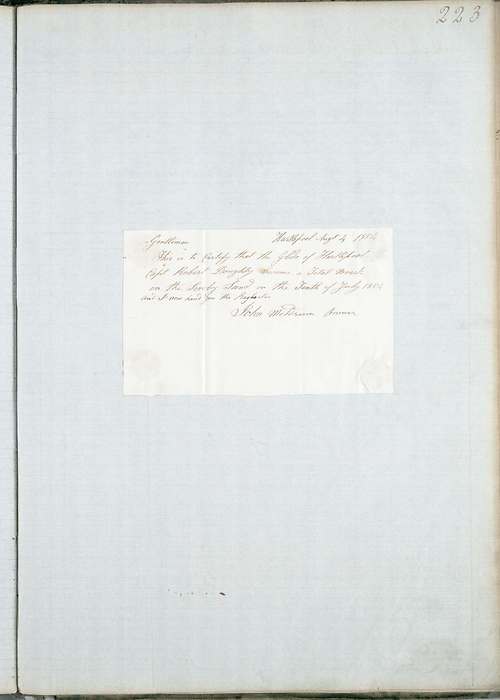 223
Hartlepool Augt 4 1854
Gentlemen
This is to Certify that the Globe of Hartlepool
Capt Robert Doughty became a Total Wreck
on the Sand on the Tenth of July 1854
and I now send you the Register
John Owner